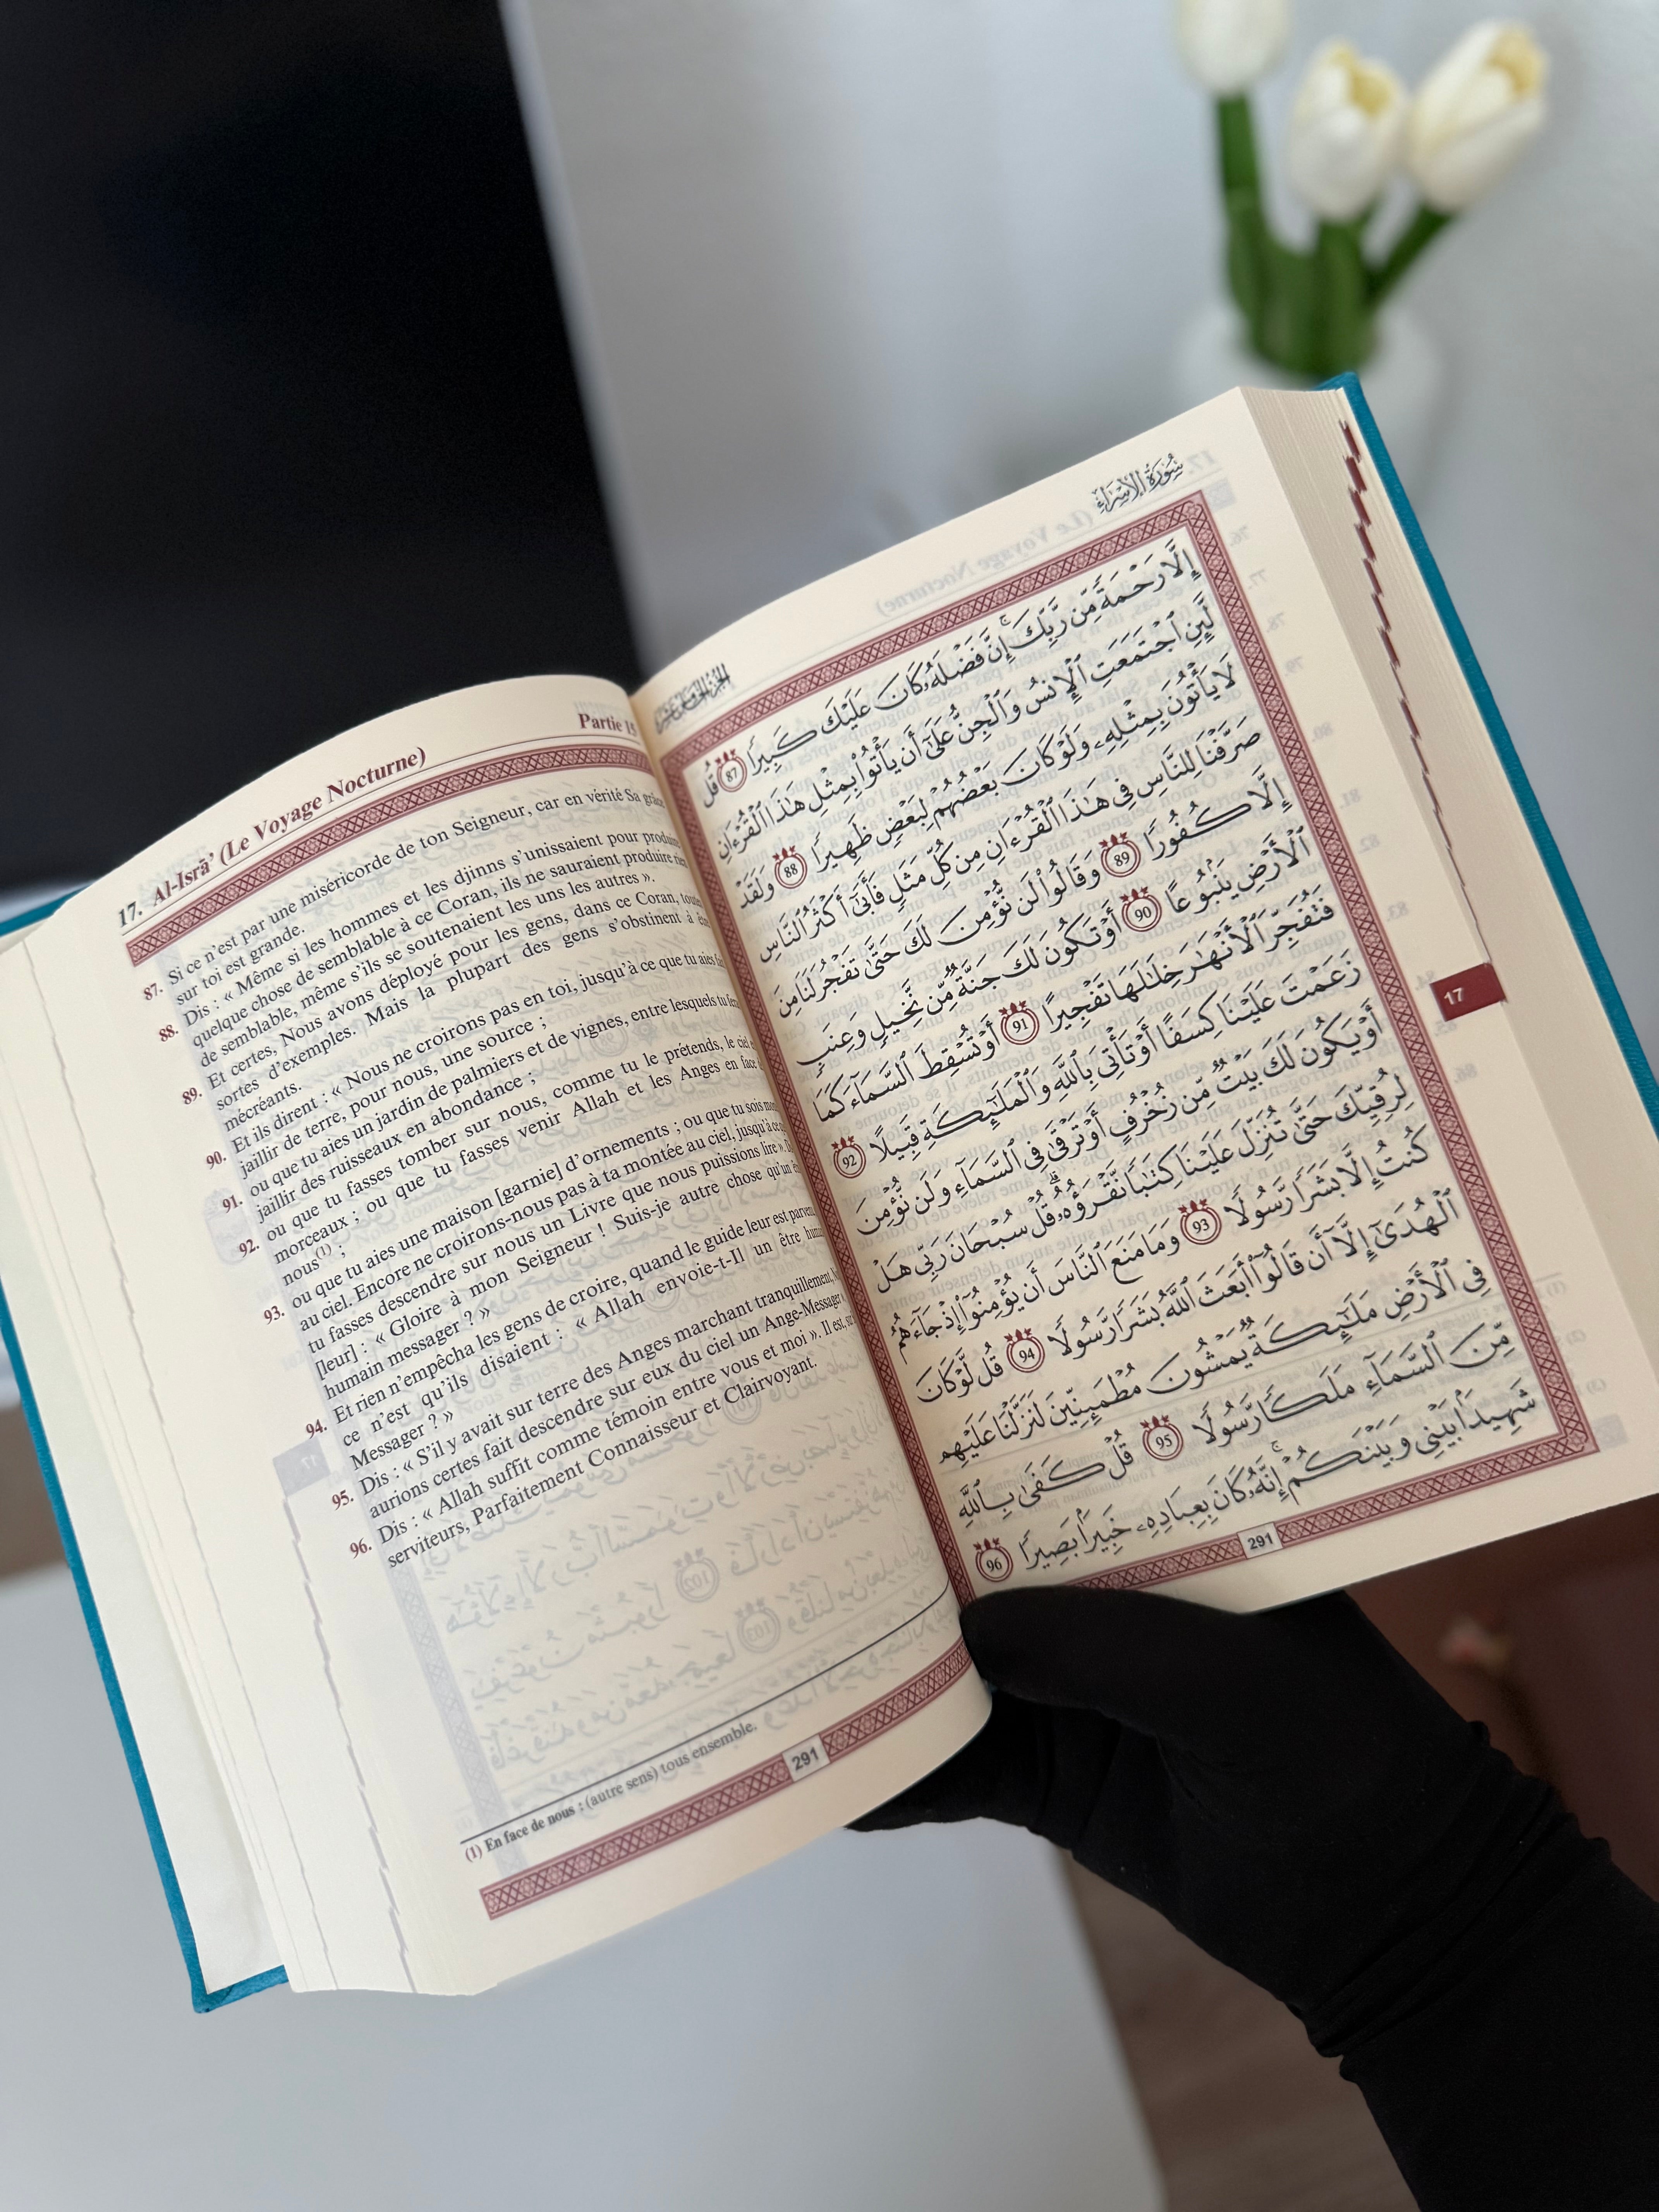 17. Al-Isrā’ (Le Voyage Nocturne)
Partie 15
87. Si ce n’est par une miséricorde de ton Seigneur, car en vérité Sa grâce
sur toi est grande.
88. Dis : « Même si les hommes et les djinns s’unissaient pour produire
quelque chose de semblable à ce Coran, ils ne sauraient produire rien
de semblable, même s’ils se soutenaient les uns les autres ».
89. Et certes, Nous avons déployé pour les gens, dans ce Coran, toutes
sortes d’exemples. Mais la plupart des gens s’obstinent à être
mécréants.
90. Et ils dirent : « Nous ne croirons pas en toi, jusqu’à ce que tu aies fait
jaillir de terre, pour nous, une source ;
91. ou que tu aies un jardin de palmiers et de vignes, entre lesquels tu
jaillir des ruisseaux en abondance ;
92. ou que tu fasses tomber sur nous, comme tu le prétends, le ciel
morceaux ; ou que tu fasses venir Allah et les Anges en face
nous(1) ;
93. ou que tu aies une maison [garnie] d’ornements ; ou que tu sois
au ciel. Encore ne croirons-nous pas à ta montée au ciel, jusqu’à ce
tu fasses descendre sur nous un Livre que nous puissions lire ».
[leur] : « Gloire à mon Seigneur ! Suis-je autre chose qu’un
humain messager ? »
94. Et rien n’empêcha les gens de croire, quand le guide leur est
ce n’est qu’ils disaient : « Allah envoie-t-Il un être
Messager ? »
95. Dis : « S’il y avait sur terre des Anges marchant tranquillement,
aurions certes fait descendre sur eux du ciel un Ange-Messager
96. Dis : « Allah suffit comme témoin entre vous et moi ». Il est,
serviteurs, Parfaitement Connaisseur et Clairvoyant.
(1) En face de nous : (autre sens) tous ensemble.
291
سُورَةُ الإِسْرَاءِ
إِلَّا رَحْمَةً مِّن رَّبِّكَ ۚ إِنَّ فَضْلَهُۥ كَانَ عَلَيْكَ كَبِيرًا 87 قُل
لَّئِنِ ٱجْتَمَعَتِ ٱلْإِنسُ وَٱلْجِنُّ عَلَىٰٓ أَن يَأْتُوا۟ بِمِثْلِ هَٰذَا ٱلْقُرْءَانِ
لَا يَأْتُونَ بِمِثْلِهِۦ وَلَوْ كَانَ بَعْضُهُمْ لِبَعْضٍ ظَهِيرًا 88 وَلَقَدْ
صَرَّفْنَا لِلنَّاسِ فِى هَٰذَا ٱلْقُرْءَانِ مِن كُلِّ مَثَلٍ فَأَبَىٰٓ أَكْثَرُ ٱلنَّاسِ
إِلَّا كُفُورًا 89 وَقَالُوا۟ لَن نُّؤْمِنَ لَكَ حَتَّىٰ تَفْجُرَ لَنَا مِنَ
ٱلْأَرْضِ يَنۢبُوعًا 90 أَوْ تَكُونَ لَكَ جَنَّةٌ مِّن نَّخِيلٍ وَعِنَبٍ
فَتُفَجِّرَ ٱلْأَنْهَٰرَ خِلَٰلَهَا تَفْجِيرًا 91 أَوْ تُسْقِطَ ٱلسَّمَآءَ كَمَا
زَعَمْتَ عَلَيْنَا كِسَفًا أَوْ تَأْتِىَ بِٱللَّهِ وَٱلْمَلَٰٓئِكَةِ قَبِيلًا 92
أَوْ يَكُونَ لَكَ بَيْتٌ مِّن زُخْرُفٍ أَوْ تَرْقَىٰ فِى ٱلسَّمَآءِ وَلَن نُّؤْمِنَ
لِرُقِيِّكَ حَتَّىٰ تُنَزِّلَ عَلَيْنَا كِتَٰبًا نَّقْرَؤُهُۥ ۗ قُلْ سُبْحَانَ رَبِّى هَلْ
كُنتُ إِلَّا بَشَرًا رَّسُولًا 93 وَمَا مَنَعَ ٱلنَّاسَ أَن يُؤْمِنُوٓا۟ إِذْ جَآءَهُمُ
ٱلْهُدَىٰٓ إِلَّآ أَن قَالُوٓا۟ أَبَعَثَ ٱللَّهُ بَشَرًا رَّسُولًا 94 قُل لَّوْ كَانَ
فِى ٱلْأَرْضِ مَلَٰٓئِكَةٌ يَمْشُونَ مُطْمَئِنِّينَ لَنَزَّلْنَا عَلَيْهِم
مِّنَ ٱلسَّمَآءِ مَلَكًا رَّسُولًا 95 قُلْ كَفَىٰ بِٱللَّهِ
شَهِيدًۢا بَيْنِى وَبَيْنَكُمْ ۚ إِنَّهُۥ كَانَ بِعِبَادِهِۦ خَبِيرًۢا بَصِيرًا 96
291
17